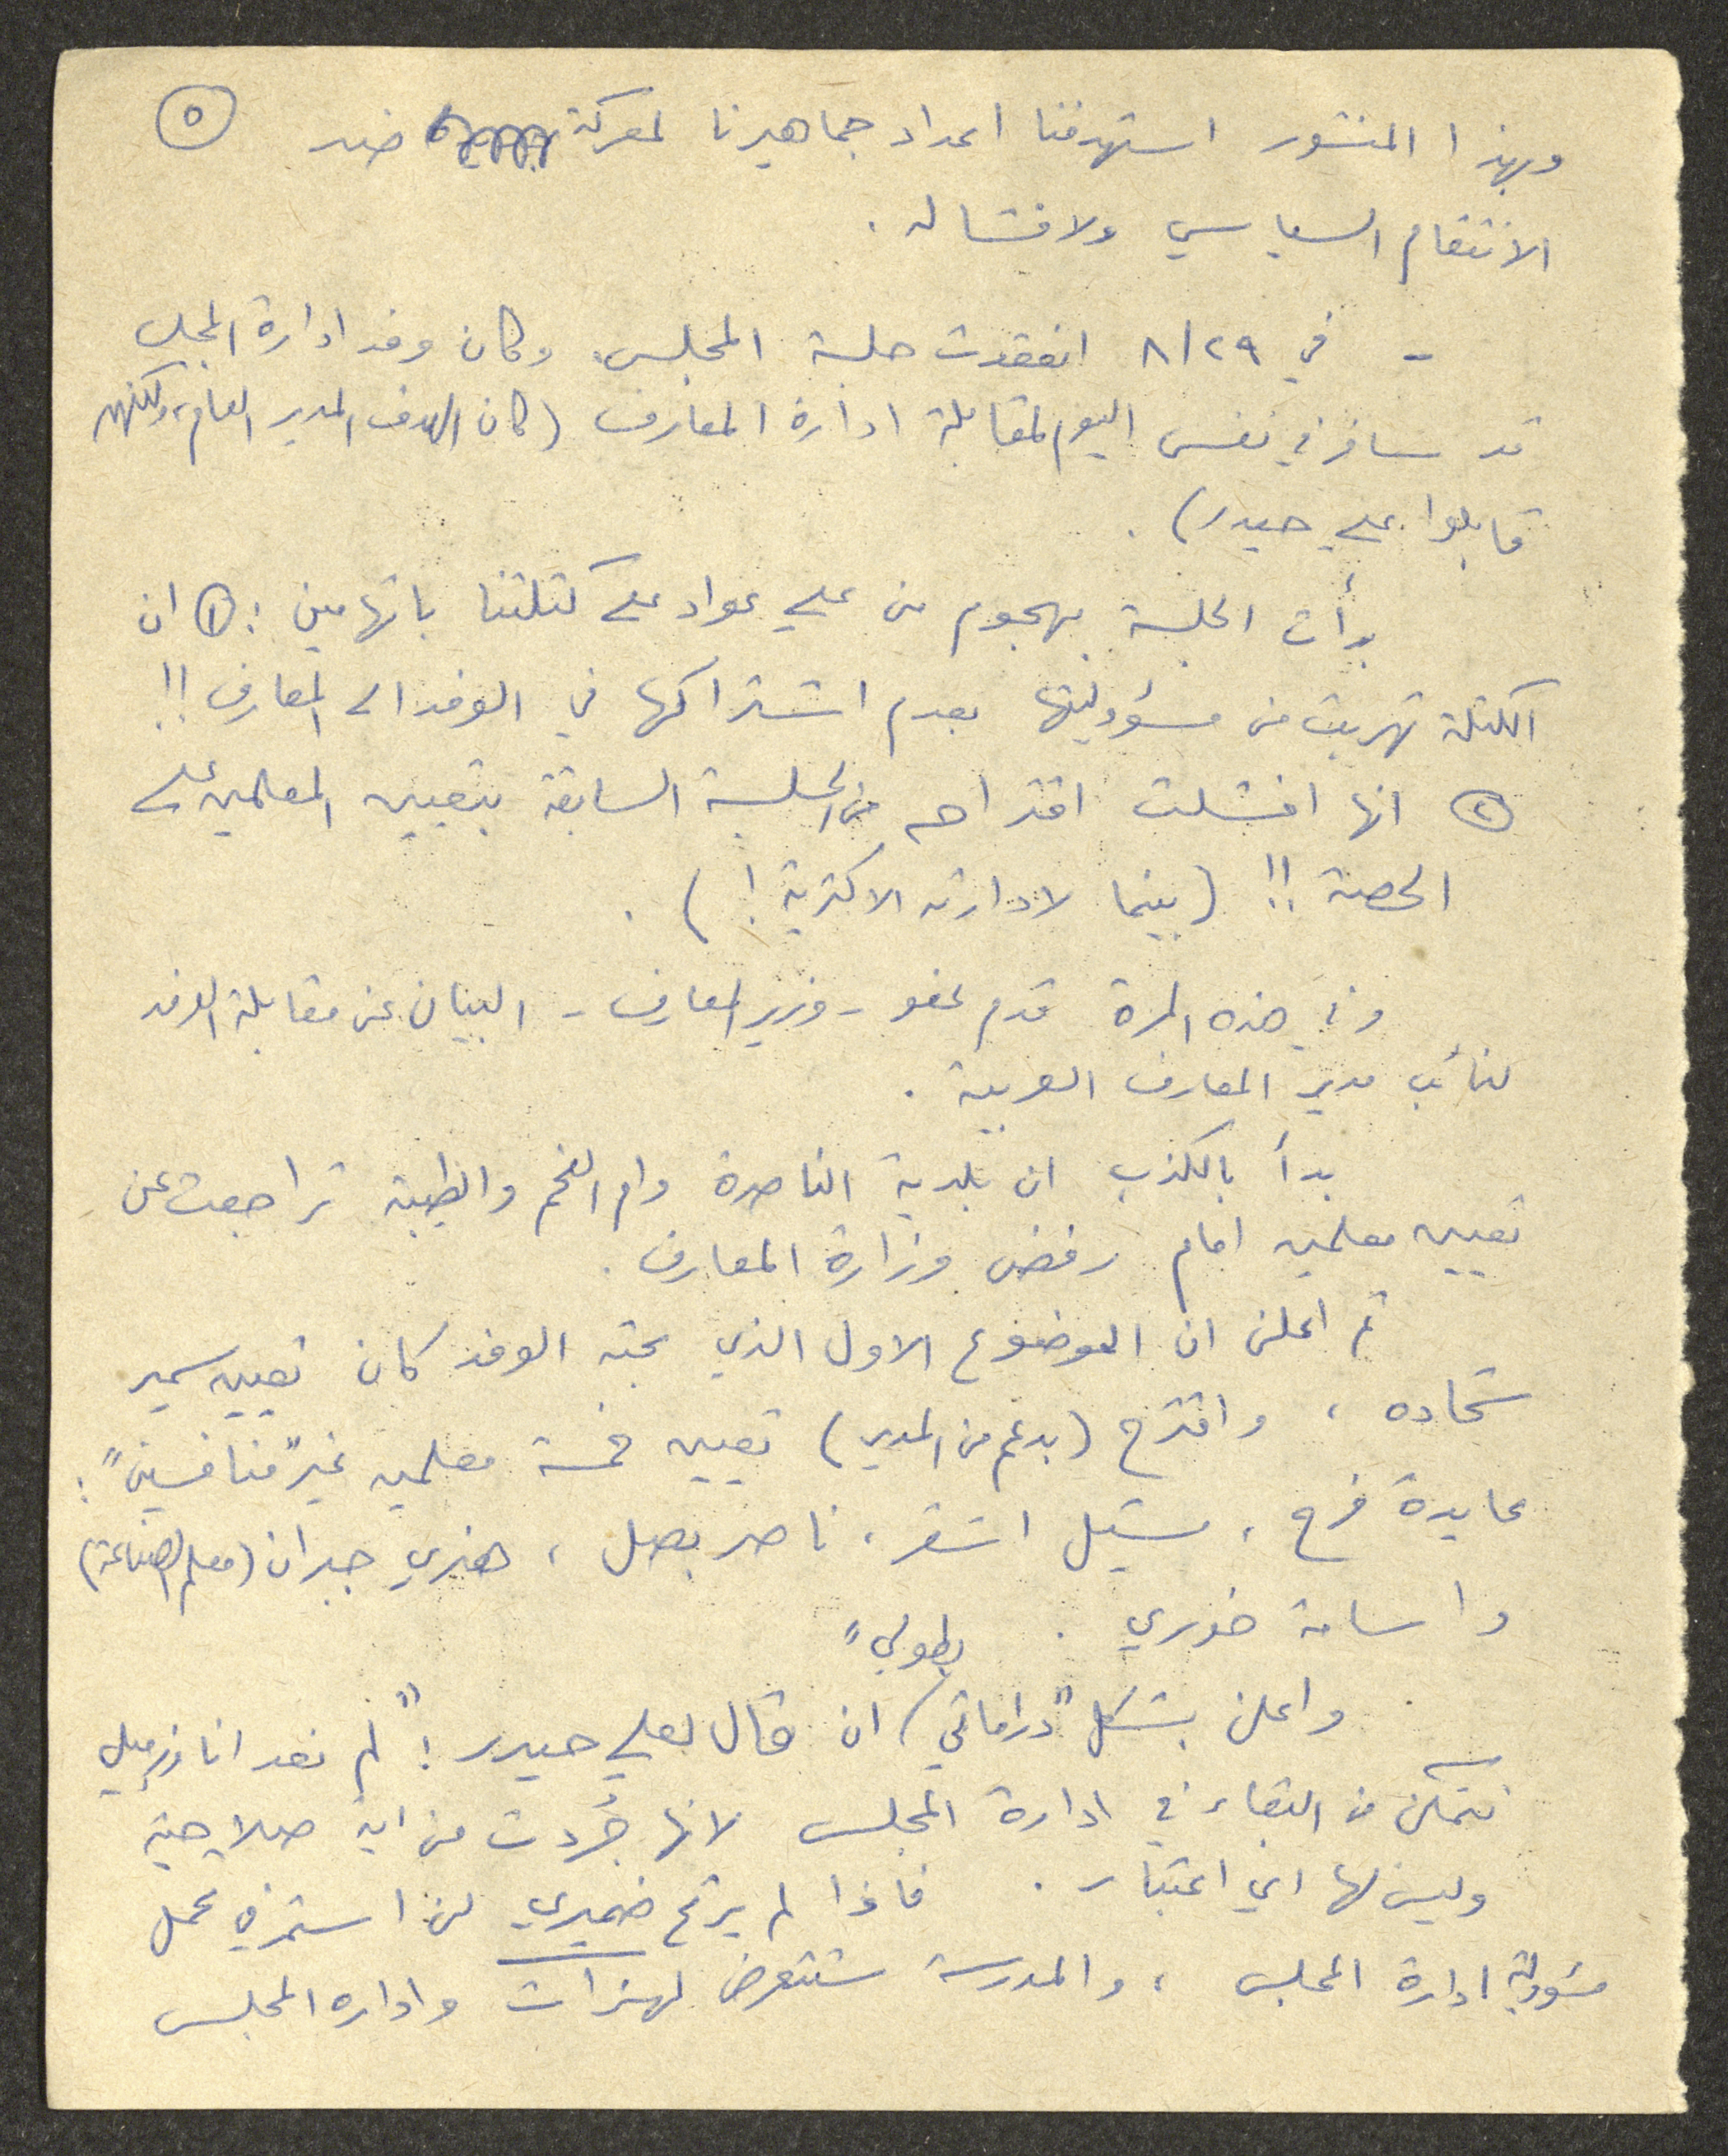 وبهذا المنشور استهدفنا اعداد جماهيرنا لمعركة ضد ٥
الانتقام السياسي ولافشاله .
- في ٨/٢٩ انعقدت جلسة المجلس. وكان وفد ادارة المجلس
قد سافر في نفس اليوم لمقابلة ادارة المعارف (كان الهدف المدير العام، ولكنهم
قابلوا علي حيدر) .
بدأت الجلسة بهجوم من علي عواد على كتلتنا باتهامين : ١ ان
الكتلة تهربت من مسؤوليتها بعدم اشتراكها في الوفد الى المعارف !!
٢ انها افشلت اقتراحه في الجلسة السابقة بتعيين المعلمين على
الحصة !! (بينما لادارته الاكثرية !) .
وفي هذه المرة قدم عفو - وزير المعارف - البيان عن مقابلة الوفد
لنائب مدير المعارف العربية .
بدأ بالكذب ان بلدية الناصرة وام الفحم والطيبة تراجعت عن
تعيين معلمين امام رفض وزارة المعارف .
ثم اعلن ان الموضوع الاول الذي بحثه الوفد كان تعيين سمير
شحاده ، واقترح (بدعم من المدير) تعيين خمسة معلمين غير "منافسين" :
عايدة فرح ، مشيل اشقر ، ناصر بصل ، هنري جبران (معلم الصناعة)
واسامة خوري .
بطولي"
واعلن بشكل "دراماتي ان قال لعلي حيدر : "لم نعد انا وزميلي
نتمكن من البقاء في ادارة المجلس لانها جُردت من اية صلاحية
وليس لها اي اعتبار . فاذا لم يرتح ضميري لن استمر في تحمل
مسؤولية ادارة المجلس ، والمدرسة ستتعرض لهزات واداره المجلس